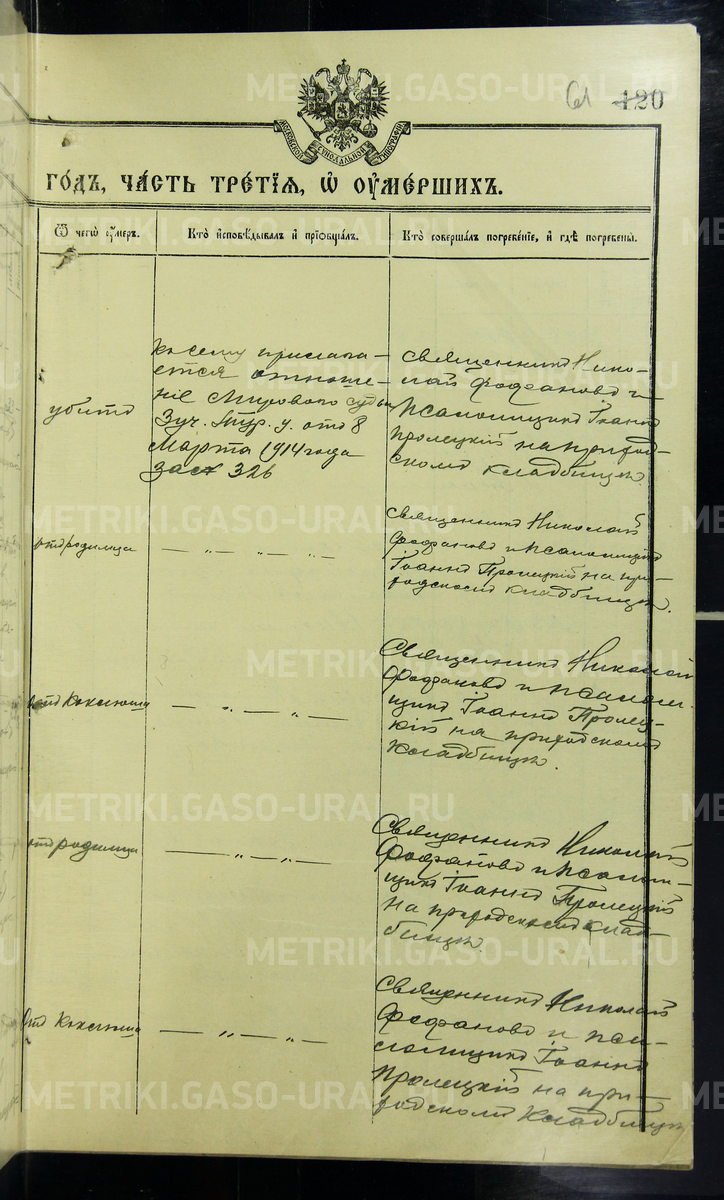 61 120
МОСКОВСКОЙ СѴНОДАЛЬНОЙ ТИПОГРАФІИ
го́дъ, ча́сть тре́тїѧ, ѡ҆ ᲂу҆ме́ршихъ.
Ѿ чегѡ̀ ᲂу҆́меръ.
Кто̀ и҆сповѣ́дывалъ и҆ прїѡбща́лъ.
Кто̀ соверша́лъ погребе́нїе, и҆ гдѣ̀ погребены̀.
убитъ
къ сему прилага-
ется отноше-
ніе Мирового судьи
3 уч. у. отъ 8
Марта 1914 года
за № 326
Священникъ Нико-
лай Фофановъ и
псаломщикъ Іоаннъ
Пролецкій на приход-
скомъ кладбищѣ.
отъ родимца
— „ — „ —
Священникъ Николай
Фофановъ и псаломщикъ
Іоаннъ Пролецкій на при-
ходскомъ кладбищѣ.
отъ коклюша
— „ — „ —
Священникъ Николай
Фофановъ и псалом-
щикъ Іоаннъ Пролец-
кій на приходскомъ
кладбищѣ.
отъ родимца
— „ — „ —
Священникъ Николай
Фофановъ и псалом-
щикъ Іоаннъ Пролецкій
на приходскомъ клад-
бищѣ.
отъ коклюша
— „ — „ —
Священникъ Николай
Фофановъ и пса-
ломщикъ Іоаннъ
Пролецкій на при-
ходскомъ кладбищѣ
METRIKI.GASO-URAL.RU